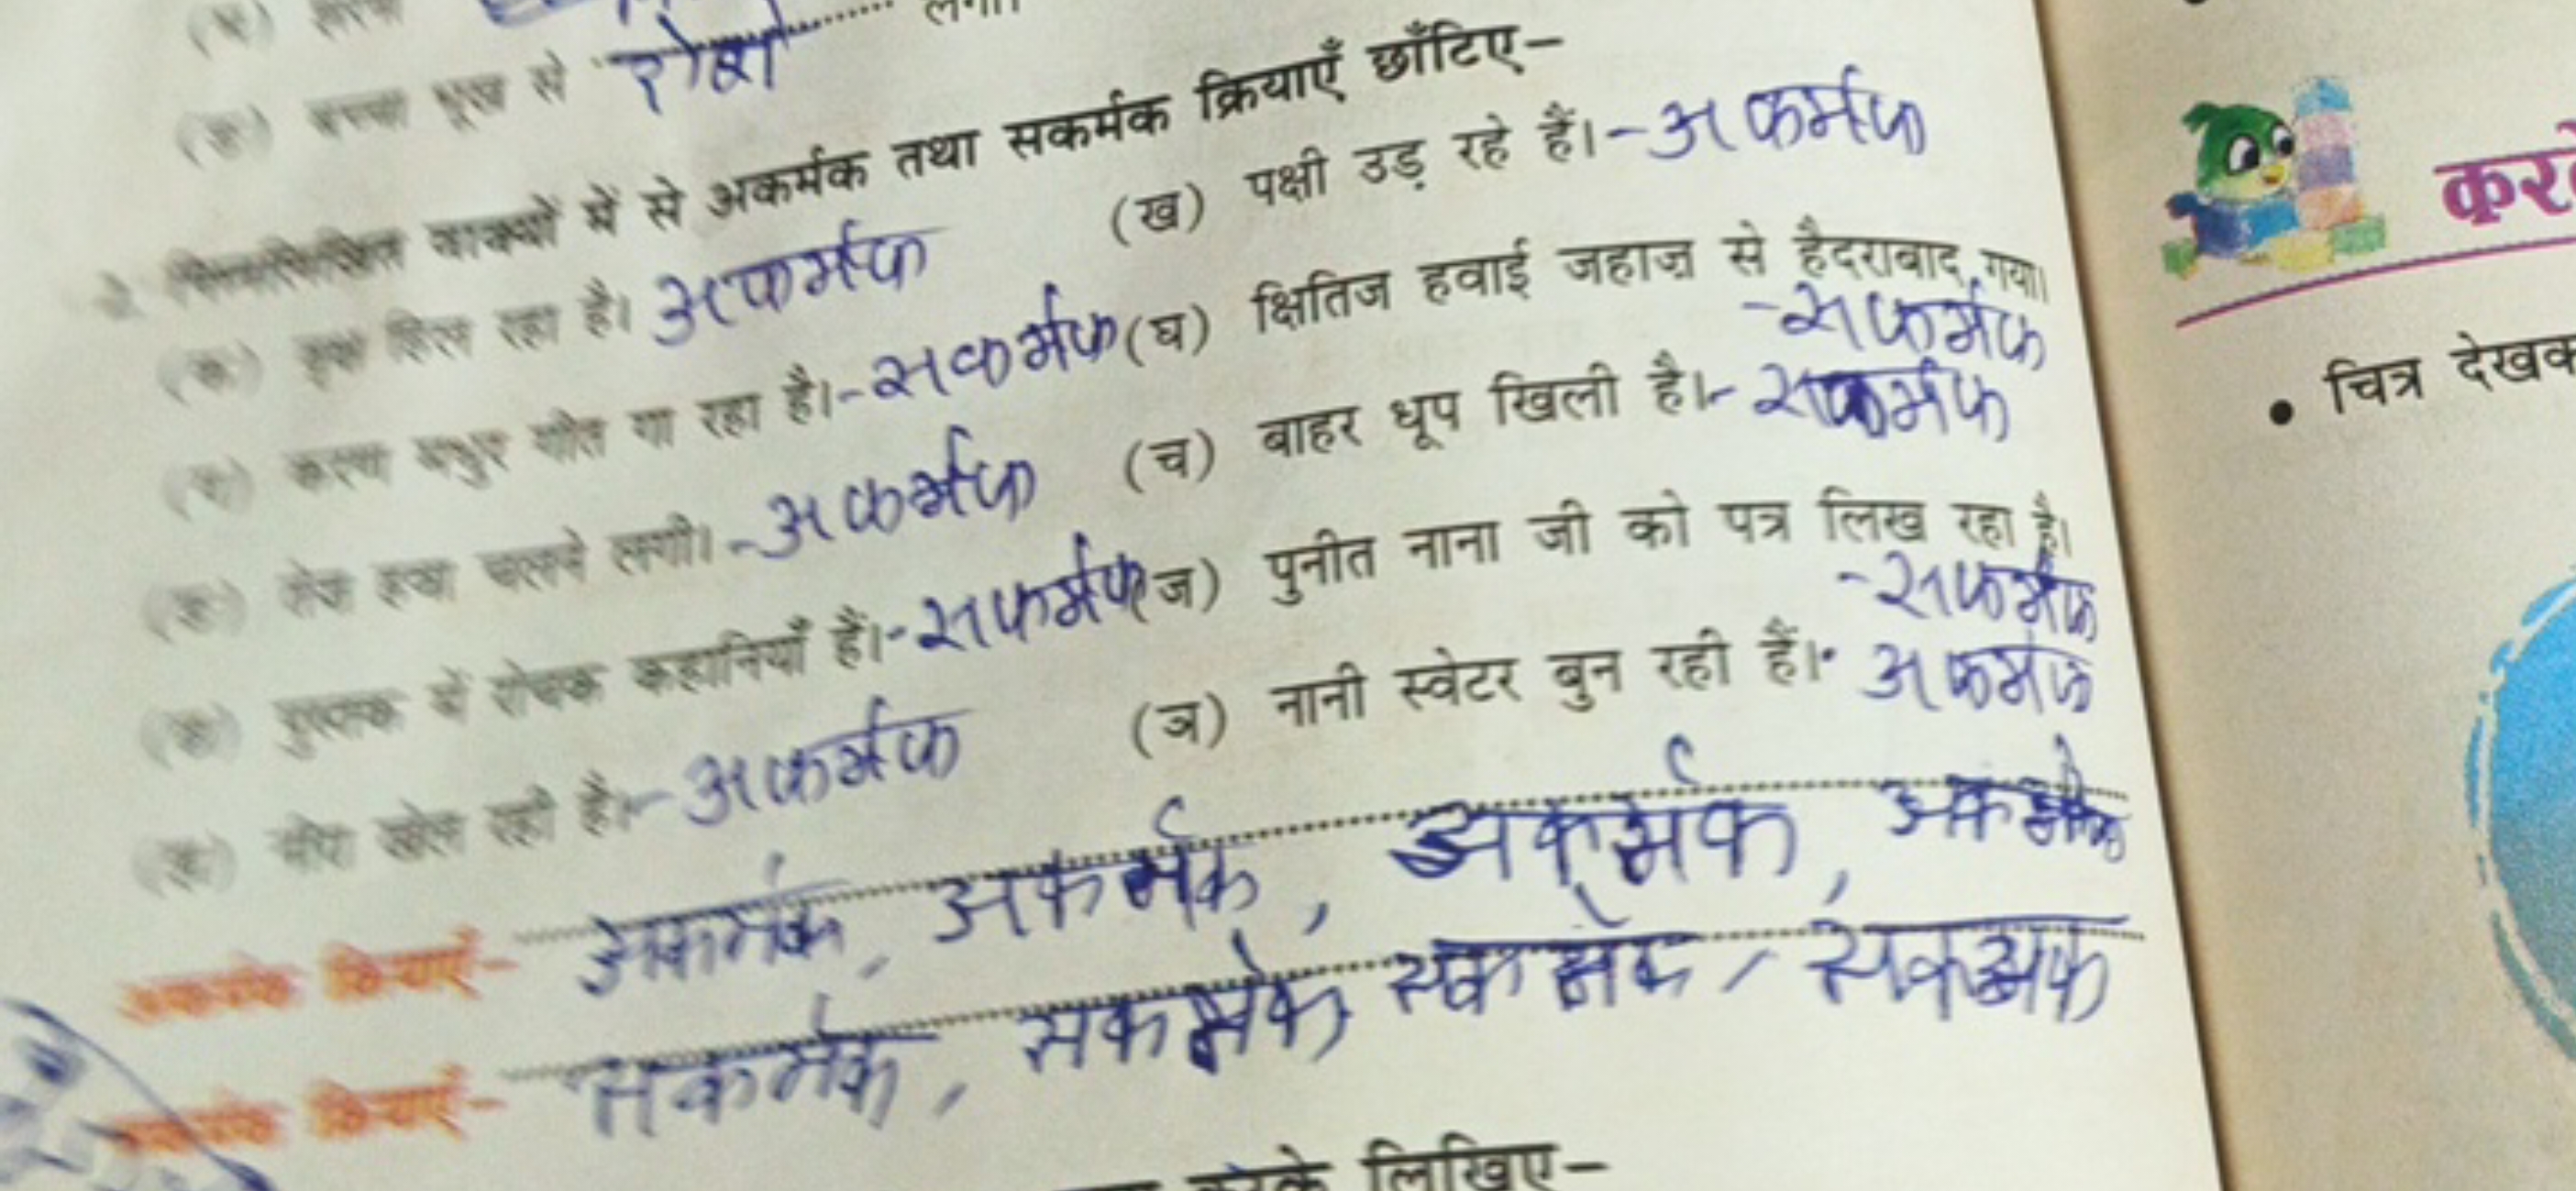 बच्चा भूख से रोने लगा।
निम्नलिखित वाक्यों में से अकर्मक तथा सकर्मक क्रियाएँ छाँटिए–
(क) वृक्ष हिल रहा है। अकर्मक (ख) पक्षी उड़ रहे हैं।-अकर्मक
(ग) करण मधुर गीत गा रहा है।-सकर्मक (घ) क्षितिज हवाई जहाज़ से हैदराबाद गया।
-सकर्मक
(ङ) तेज हवा चलने लगी।-अकर्मक (च) बाहर धूप खिली है।-सकर्मक
(छ) पुस्तक में रोचक कहानियाँ हैं।-सकर्मक (ज) पुनीत नाना जी को पत्र लिख रहा है।
-सकर्मक
(झ) मीरा खेल रही है।-अकर्मक (ञ) नानी स्वेटर बुन रही हैं। अकर्मक
अकर्मक क्रियाएँ– अकर्मक, अकर्मक, अकर्मक, अकर्मक
सकर्मक क्रियाएँ– सकर्मक, सकर्मक सकर्मक, सकर्मक
करके लिखिए–
• चित्र देखक